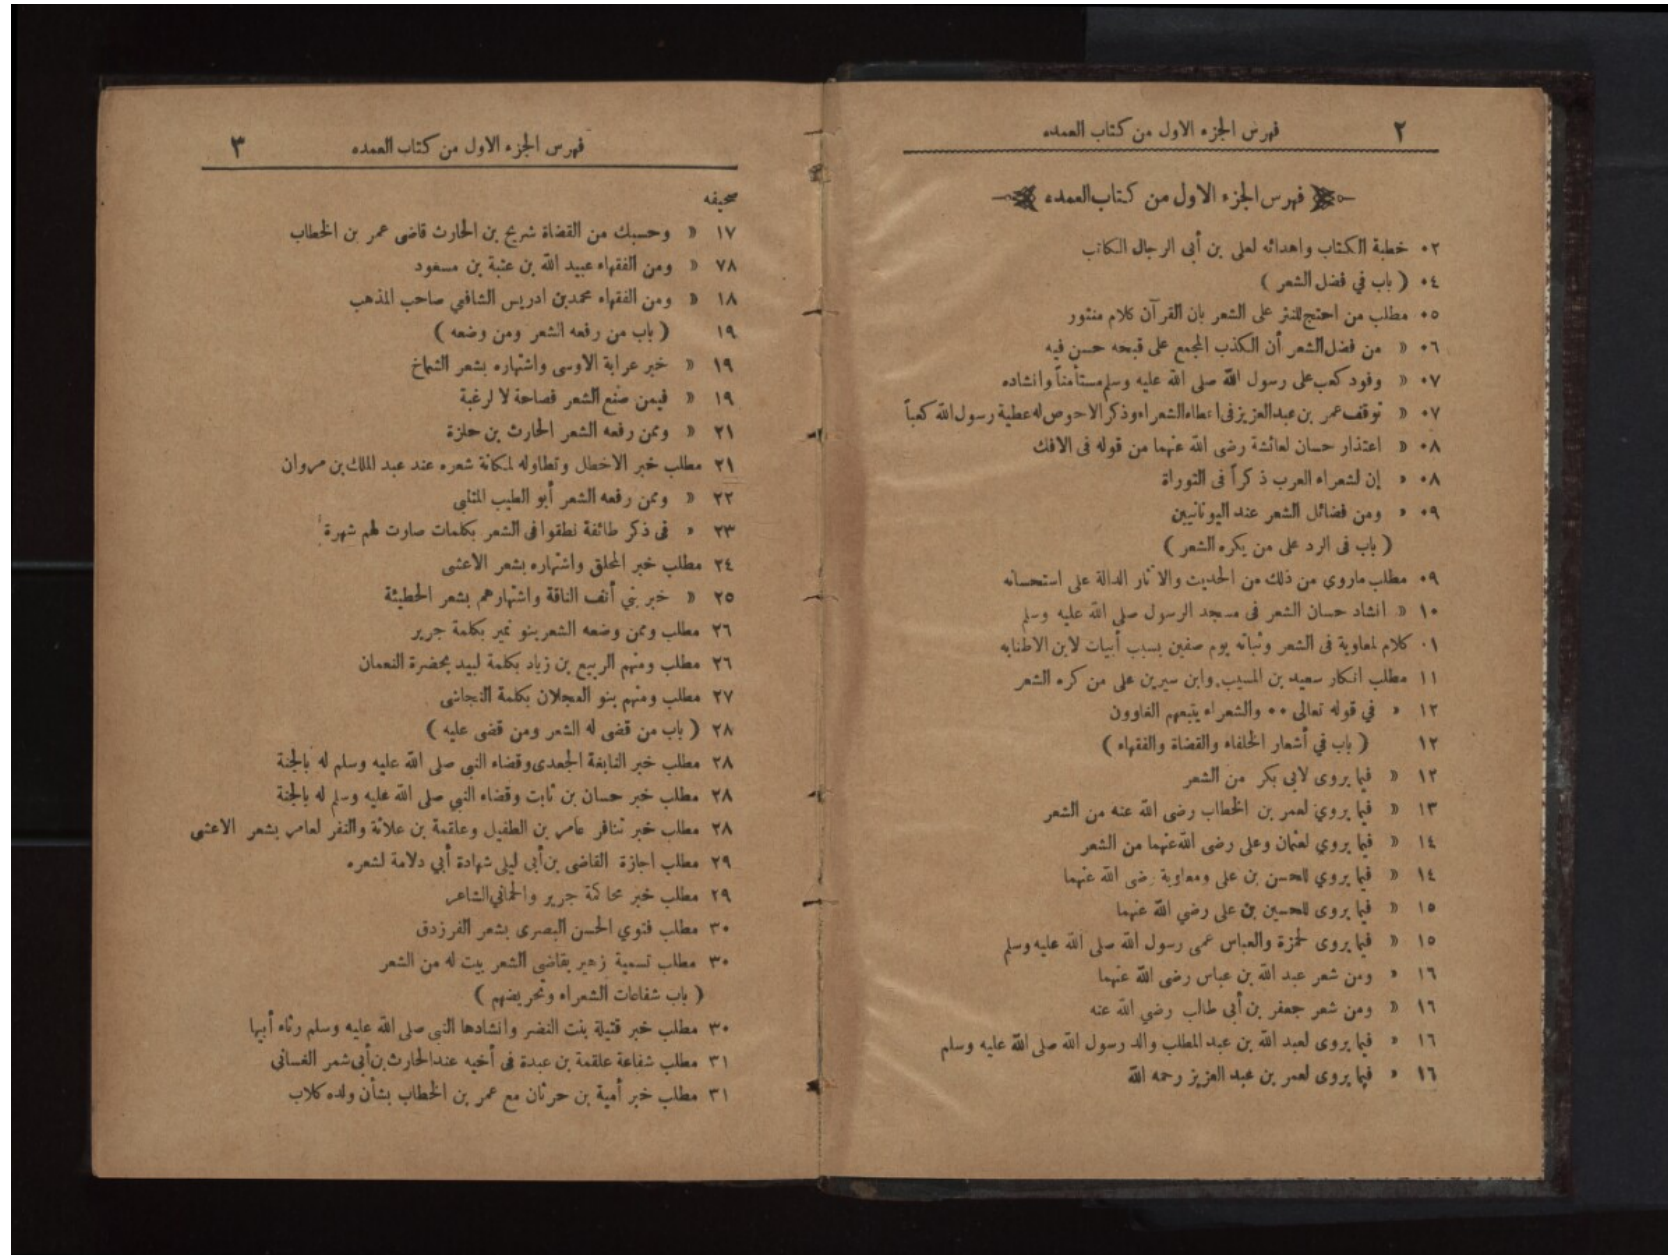 ٢ فهرس الجزء الاول من كتاب العمده
فهرس الجزء الاول من كتاب العمده
٠٢ خطبة الكتاب واهدائه لعلى بن أبى الرجال الكاتب
٠٤ ( باب في فضل الشعر )
٠٥ مطلب من احتج للنثر على الشعر بان القرآن كلام منثور
٠٦ « من فضل الشعر أن الكذب المجمع على قبحه حسن فيه
٠٧ « وفود كعب على رسول الله صلى الله عليه وسلم مستأمناً وانشاده
٠٧ « توقف عمر بن عبد العزيز فى اعطاء الشعراء وذكر الاحوص له عطية رسول الله كعباً
٠٨ « اعتذار حسان لعائشة رضى الله عنهما من قوله فى الافك
٠٨ « إن لشعراء العرب ذكراً فى التوراة
٠٩ « ومن فضائل الشعر عند اليونانيين
( باب فى الرد على من يكره الشعر )
٠٩ مطلب ماروي من ذلك من الحديث والآثار الدالة على استحسانه
١٠ « انشاد حسان الشعر فى مسجد الرسول صلى الله عليه وسلم
٠١ كلام لمعاوية فى الشعر وثباته يوم صفين بسبب أبيات لابن الاطنابه
١١ مطلب انكار سعيد بن المسيب وابن سيرين على من كره الشعر
١٢ « في قوله تعالى ** والشعراء يتبعهم الغاوون
١٢ ( باب في أشعار الخلفاء والقضاة والفقهاء )
١٢ « فيما يروى لابى بكر من الشعر
١٣ « فيما يروي لعمر بن الخطاب رضى الله عنه من الشعر
١٤ « فيما يروي لعثمان وعلى رضى الله عنهما من الشعر
١٤ « فيما يروي للحسن بن على ومعاوية رضى الله عنهما
١٥ « فيما يروى للحسين بن على رضي الله عنهما
١٥ « فيما يروى لحمزة والعباس عمى رسول الله صلى الله عليه وسلم
١٦ « ومن شعر عبد الله بن عباس رضى الله عنهما
١٦ « ومن شعر جعفر بن أبى طالب رضي الله عنه
١٦ « فيما يروى لعبد الله بن عبد المطلب والد رسول الله صلى الله عليه وسلم
١٦ « فيما يروى لعمر بن عبد العزيز رحمه الله
فهرس الجزء الاول من كتاب العمده ٣
صحيفه
١٧ « وحسبك من القضاة شريح بن الحارث قاضى عمر بن الخطاب
٧٨ « ومن الفقهاء عبيد الله بن عتبة بن مسعود
١٨ « ومن الفقهاء محمد بن ادريس الشافعي صاحب المذهب
١٩ ( باب من رفعه الشعر ومن وضعه )
١٩ « خبر عرابة الاوسى واشتهاره بشعر الشماخ
١٩ « فيمن صنع الشعر فصاحة لا لرغبة
٢١ « وممن رفعه الشعر الحارث بن حلزة
٢١ مطلب خبر الاخطل وتطاوله لمكانة شعره عند عبد الملك بن مروان
٢٢ « وممن رفعه الشعر أبو الطيب المتنبى
٢٣ « فى ذكر طائفة نطقوا فى الشعر بكلمات صارت لهم شهرة
٢٤ مطلب خبر المحلق واشتهاره بشعر الاعشى
٢٥ « خبر بني أنف الناقة واشتهارهم بشعر الحطيئة
٢٦ مطلب وممن وضعه الشعر بنو نمير بكلمة جرير
٢٦ مطلب ومنهم الربيع بن زياد بكلمة لبيد بحضرة النعمان
٢٧ مطلب ومنهم بنو العجلان بكلمة النجاشى
٢٨ ( باب من قضى له الشعر ومن قضى عليه )
٢٨ مطلب خبر النابغة الجعدى وقضاء النبى صلى الله عليه وسلم له بالجنة
٢٨ مطلب خبر حسان بن ثابت وقضاء النبي صلى الله عليه وسلم له بالجنة
٢٨ مطلب خبر تنافر عامر بن الطفيل وعلقمة بن علاثة والنفر لعامر بشعر الاعشى
٢٩ مطلب اجازة القاضى بن أبى ليلى شهادة أبي دلامة لشعره
٢٩ مطلب خبر محاكمة جرير والحمانى الشاعر
٣٠ مطلب فتوي الحسن البصرى بشعر الفرزدق
٣٠ مطلب تسمية زهير بقاضى الشعر بيت له من الشعر
( باب شفاعات الشعراء وتحريضهم )
٣٠ مطلب خبر قتيلة بنت النضر وانشادها النبى صلى الله عليه وسلم رثاء أبيها
٣١ مطلب شفاعة علقمة بن عبدة فى أخيه عند الحارث بن أبى شمر الغسانى
٣١ مطلب خبر أمية بن حرثان مع عمر بن الخطاب بشأن ولده كلاب